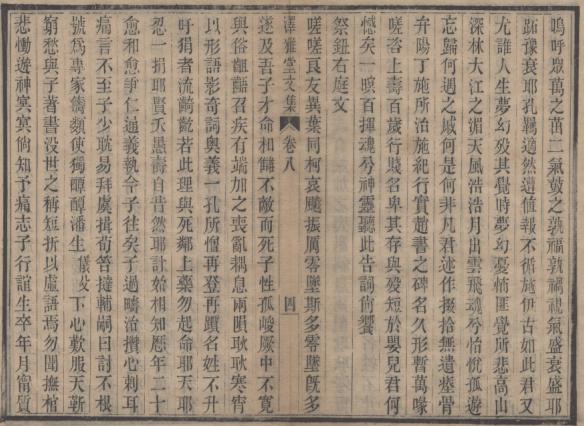 嗚呼眾萬之茁二氣鼓之孰福孰禍視氣盛衰盛耶
跖豫衰耶孔羈適然遺值報不循施伊古如此君又
尤誰人生夢幻歿其覺時夢幻憂悄匪覺所悲高山
深林大江之湄天風浩浩月出雲飛魂兮怡悅孤遊
忘歸何遇之戚何是何非凡君述作掇拾無遺瘞骨
弁陽丁施所治施紀行實趙書之碑名久形暫萬喙
嗟咨上壽百歲行賤名卑其存與歿短於嬰兒君何
憾矣一暝百揮魂兮神靈聽此告詞尚饗
祭鈕右庭文
嗟嗟良友異葉同柯哀飈振厲零墜斯多零墜旣多
澤雅堂文集 卷八 四
遂及吾子才命相讎不敵而死子性孤峻厥中不寬
與俗齟齬召疾有端加之喪亂耦息兩隕耿耿寒宵
以形語影奇詞奧義一孔所憎再登再躓名姓不升
吁狷者流齮齕若此理與死鄰上藥勿起命耶天耶
忽一捐耶賢夭愚壽自昔然耶計始相知歷年二十
愈和愈爭仁通義執令子往矣子過疇治攢心刺耳
痛言不至子少耽易拜虞揖荀答撻輔嗣曰討不根
號爲專家儔類使獨醰醰潘生儀父下心歎服天靳
窮愁與子著書沒世之稱短折以虛語焉勿聞撫棺
悲慟遊神冥冥尙知予痛志子行誼生卒年月甯質